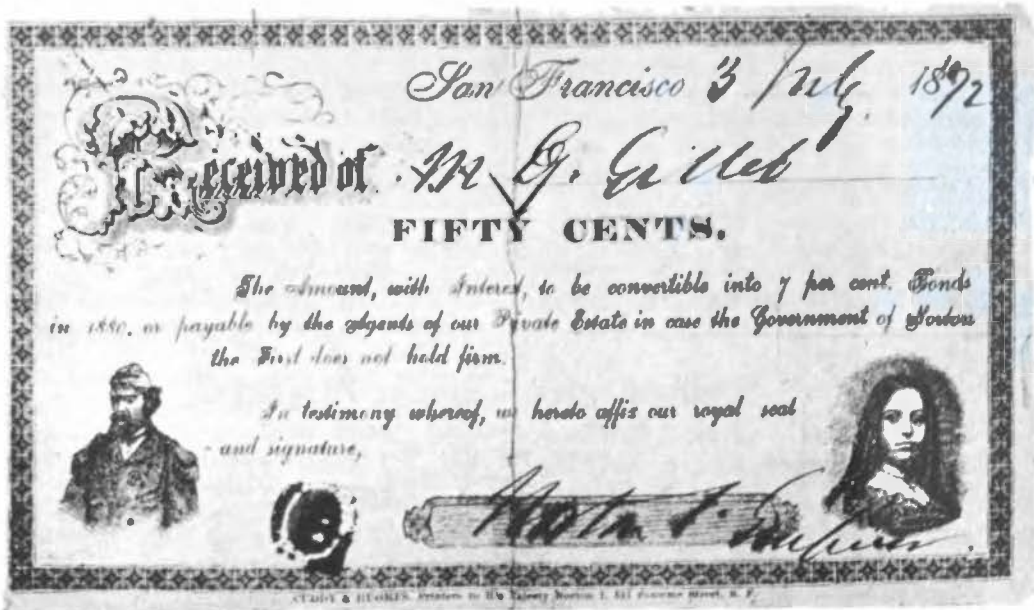 San Francisco 3 July 1872
Received of Mr G.
FIFTY CENTS.
The Amount, with Interest, to be convertible into 7 per cent. Bonds
in 1880, or payable by the Agents of our Private Estate in case the Government of Norton
the First does not hold firm.
In testimony whereof, we hereto affix our royal seal
and signature,
Norton I. Emperor.
CUDDY & HUGHES, Printers to His Majesty Norton I, 511 Sansome Street, S. F.